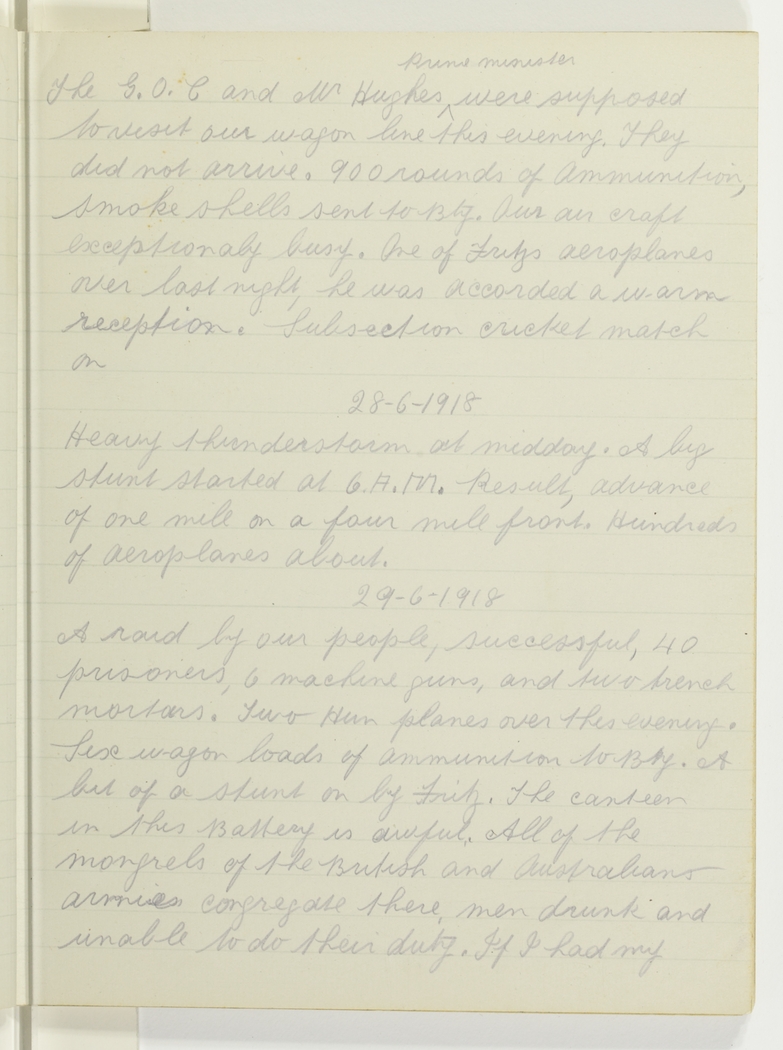 Prime minister
The G.O.C and Mr Hughes, were supposed
to visit our wagon line this evening. They
did not arrive. 900 rounds of Ammunition,
smoke shells sent to Bty. Our air craft
exceptionaly busy. One of Fritzs aeroplanes
over last night, he was accorded a warm
reception. Subsection cricket match
on
28-6-1918
Heavy thunderstorm at midday. A big
stunt started at 6.A.M. Result, advance
of one mile on a four mile front. Hundreds
of aeroplanes about.
29-6-1918
A raid by our people, successful, 40
prisoners, 6 machine guns, and two trench
mortars. Two Hun planes over this evening.
Six wagon loads of ammunition to Bty. A
bit of a stunt on by Fritz. The canteen
in this Battery is awful. All of the
mongrels of the British and Australians
armies congregate there, men drunk and
unable to do their duty. If I had my